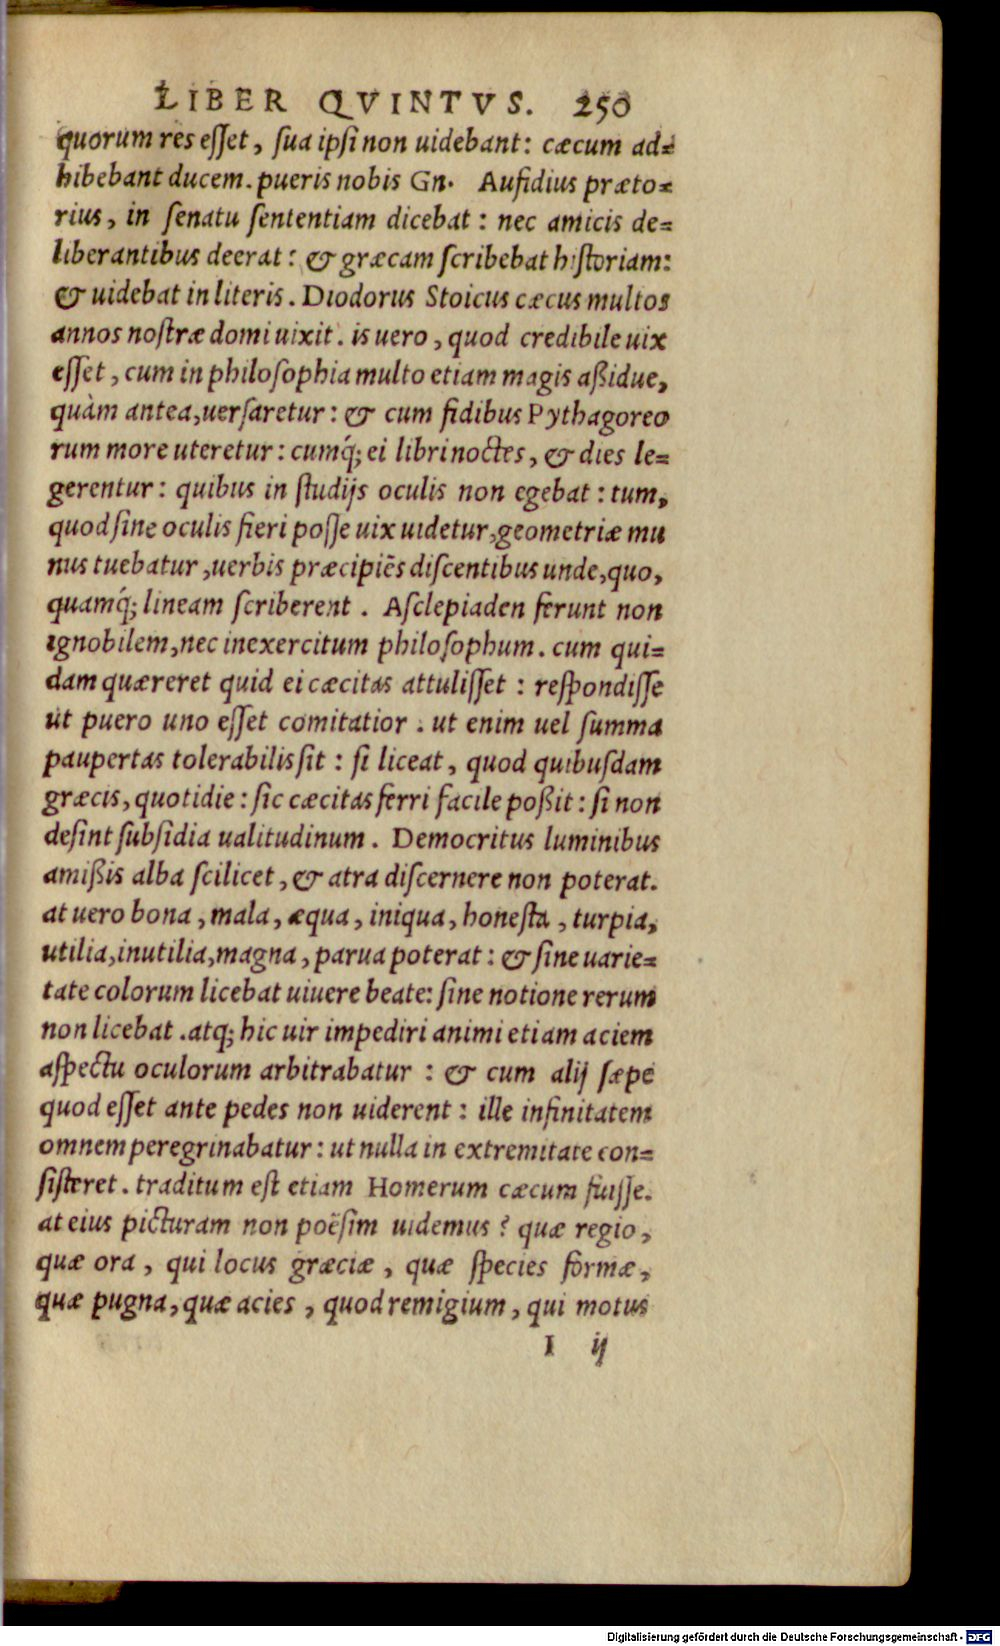 LIBER QVINTVS. 250
quorum res esſet, ſua ipſi non uidebant: cæcum ad=
hibebant ducem. pueris nobis Gn. Aufidius præto=
rius, in ſenatu ſententiam dicebat: nec amicis de=
liberantibus deerat: & græcam ſcribebat hiſtoriam:
& uidebat in literis. Diodorus Stoicus cæcus multos
annos noſtræ domi uixit. is uero, quod credibile uix
esſet, cum in philoſophia multo etiam magis aßidue,
quàm antea, uerſaretur: & cum fidibus Pythagoreo
rum more uteretur: cumq́; ei libri noctes, & dies le=
gerentur: quibus in ſtudijs oculis non egebat: tum,
quod ſine oculis fieri poſſe uix uidetur, geometriæ mu
nus tuebatur, uerbis præcipiẽs diſcentibus unde, quo,
quamq́; lineam ſcriberent. Aſclepiaden ferunt non
ignobilem, nec inexercitum philoſophum. cum qui=
dam quæreret quid ei cæcitas attuliſſet: reſpondiſſe
ut puero uno eſſet comitatior. ut enim uel ſumma
paupertas tolerabilis ſit: ſi liceat, quod quibuſdam
græcis, quotidie: ſic cæcitas ferri facile poßit: ſi non
deſint ſubſidia ualitudinum. Democritus luminibus
amißis alba ſcilicet, & atra diſcernere non poterat.
at uero bona, mala, æqua, iniqua, honeſta, turpia,
utilia, inutilia, magna, parua poterat: & ſine uarie=
tate colorum licebat uiuere beate: ſine notione rerum
non licebat. atq; hic uir impediri animi etiam aciem
aſpectu oculorum arbitrabatur: & cum alij ſæpe
quod eſſet ante pedes non uiderent: ille infinitatem
omnem peregrinabatur: ut nulla in extremitate con=
ſiſteret. traditum eſt etiam Homerum cæcum fuiſſe.
at eius picturam non poëſim uidemus? quæ regio,
quæ ora, qui locus græciæ, quæ ſpecies formæ,
quæ pugna, quæ acies, quod remigium, qui motus
I ij
Digitalisierung gefördert durch die Deutsche Forschungsgemeinschaft - DFG